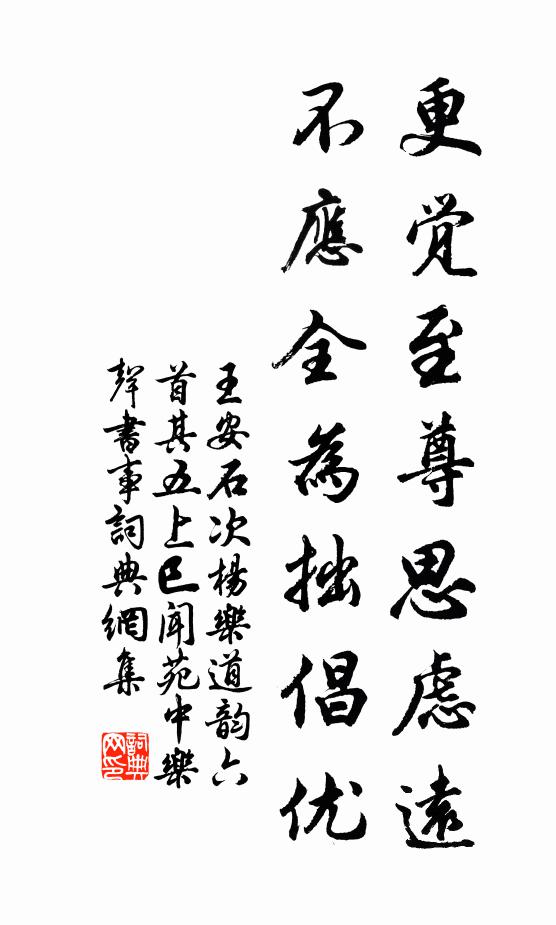 更觉至尊思虑遠
不應全為拙倡优
王安石次楊樂道韵六
首其五上巳聞苑中樂
聲書事詞典網集
詞典网印